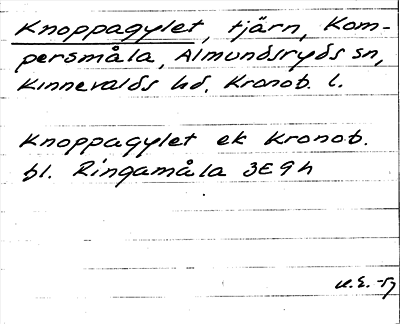 Knoppagylet, tjärn, Kom-
persmåla, Almundsryds sn,
Kinnevalds hd. Kronob. l.
Knoppagylet ek Kronob.
bl. Ringamåla 3E9h